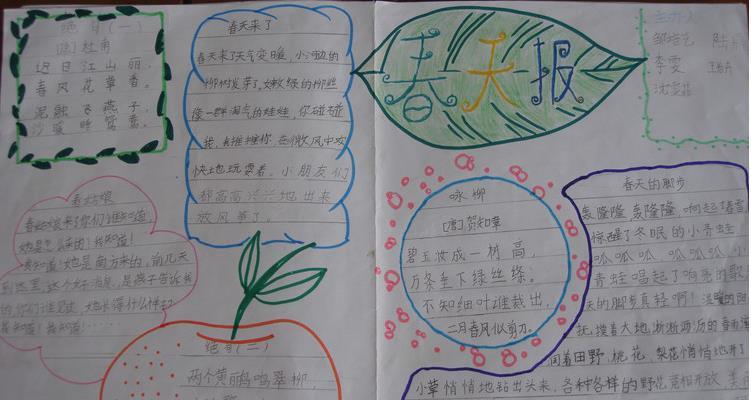 绝句(一)
[唐]杜甫
迟日江山丽，
春风花草香。
泥融飞燕子，
沙暖睡鸳鸯。
春天来了
春天来了天气变暖，小河边的
柳树发芽了，嫩绿的柳丝
像一群淘气的娃娃，你碰碰
我，我推推你，在微风中欢
快地玩耍着。小朋友们
都高高兴兴地出来
放风筝了。
春天报
主办人
李雯
春姑娘
春姑娘来了你们谁知道
她是怎么来的？我知道！
我知道！她是南方来的，前几天
到这里，这个好消息，是燕子告诉我
的你们谁见过，她长得什么样的
我知道！我知道！
绝句(二)
两个黄鹂鸣翠柳，
咏柳
[唐]贺知章
碧玉妆成一树高，
万条垂下绿丝绦。
不知细叶谁裁出，
二月春风似剪刀。
春天的脚步
轰隆隆 轰隆隆，响起了春雷
惊醒了冬眠的小青蛙
呱 呱呱 呱呱
青蛙唱起了响亮的歌
天的脚步真轻啊！温暖的阳
抚摸着大地，淅淅沥沥的春雨
闰着田野，桃花，梨花悄悄地开了
小草悄悄地钻出头来，各种各样的野花竞相开放，美